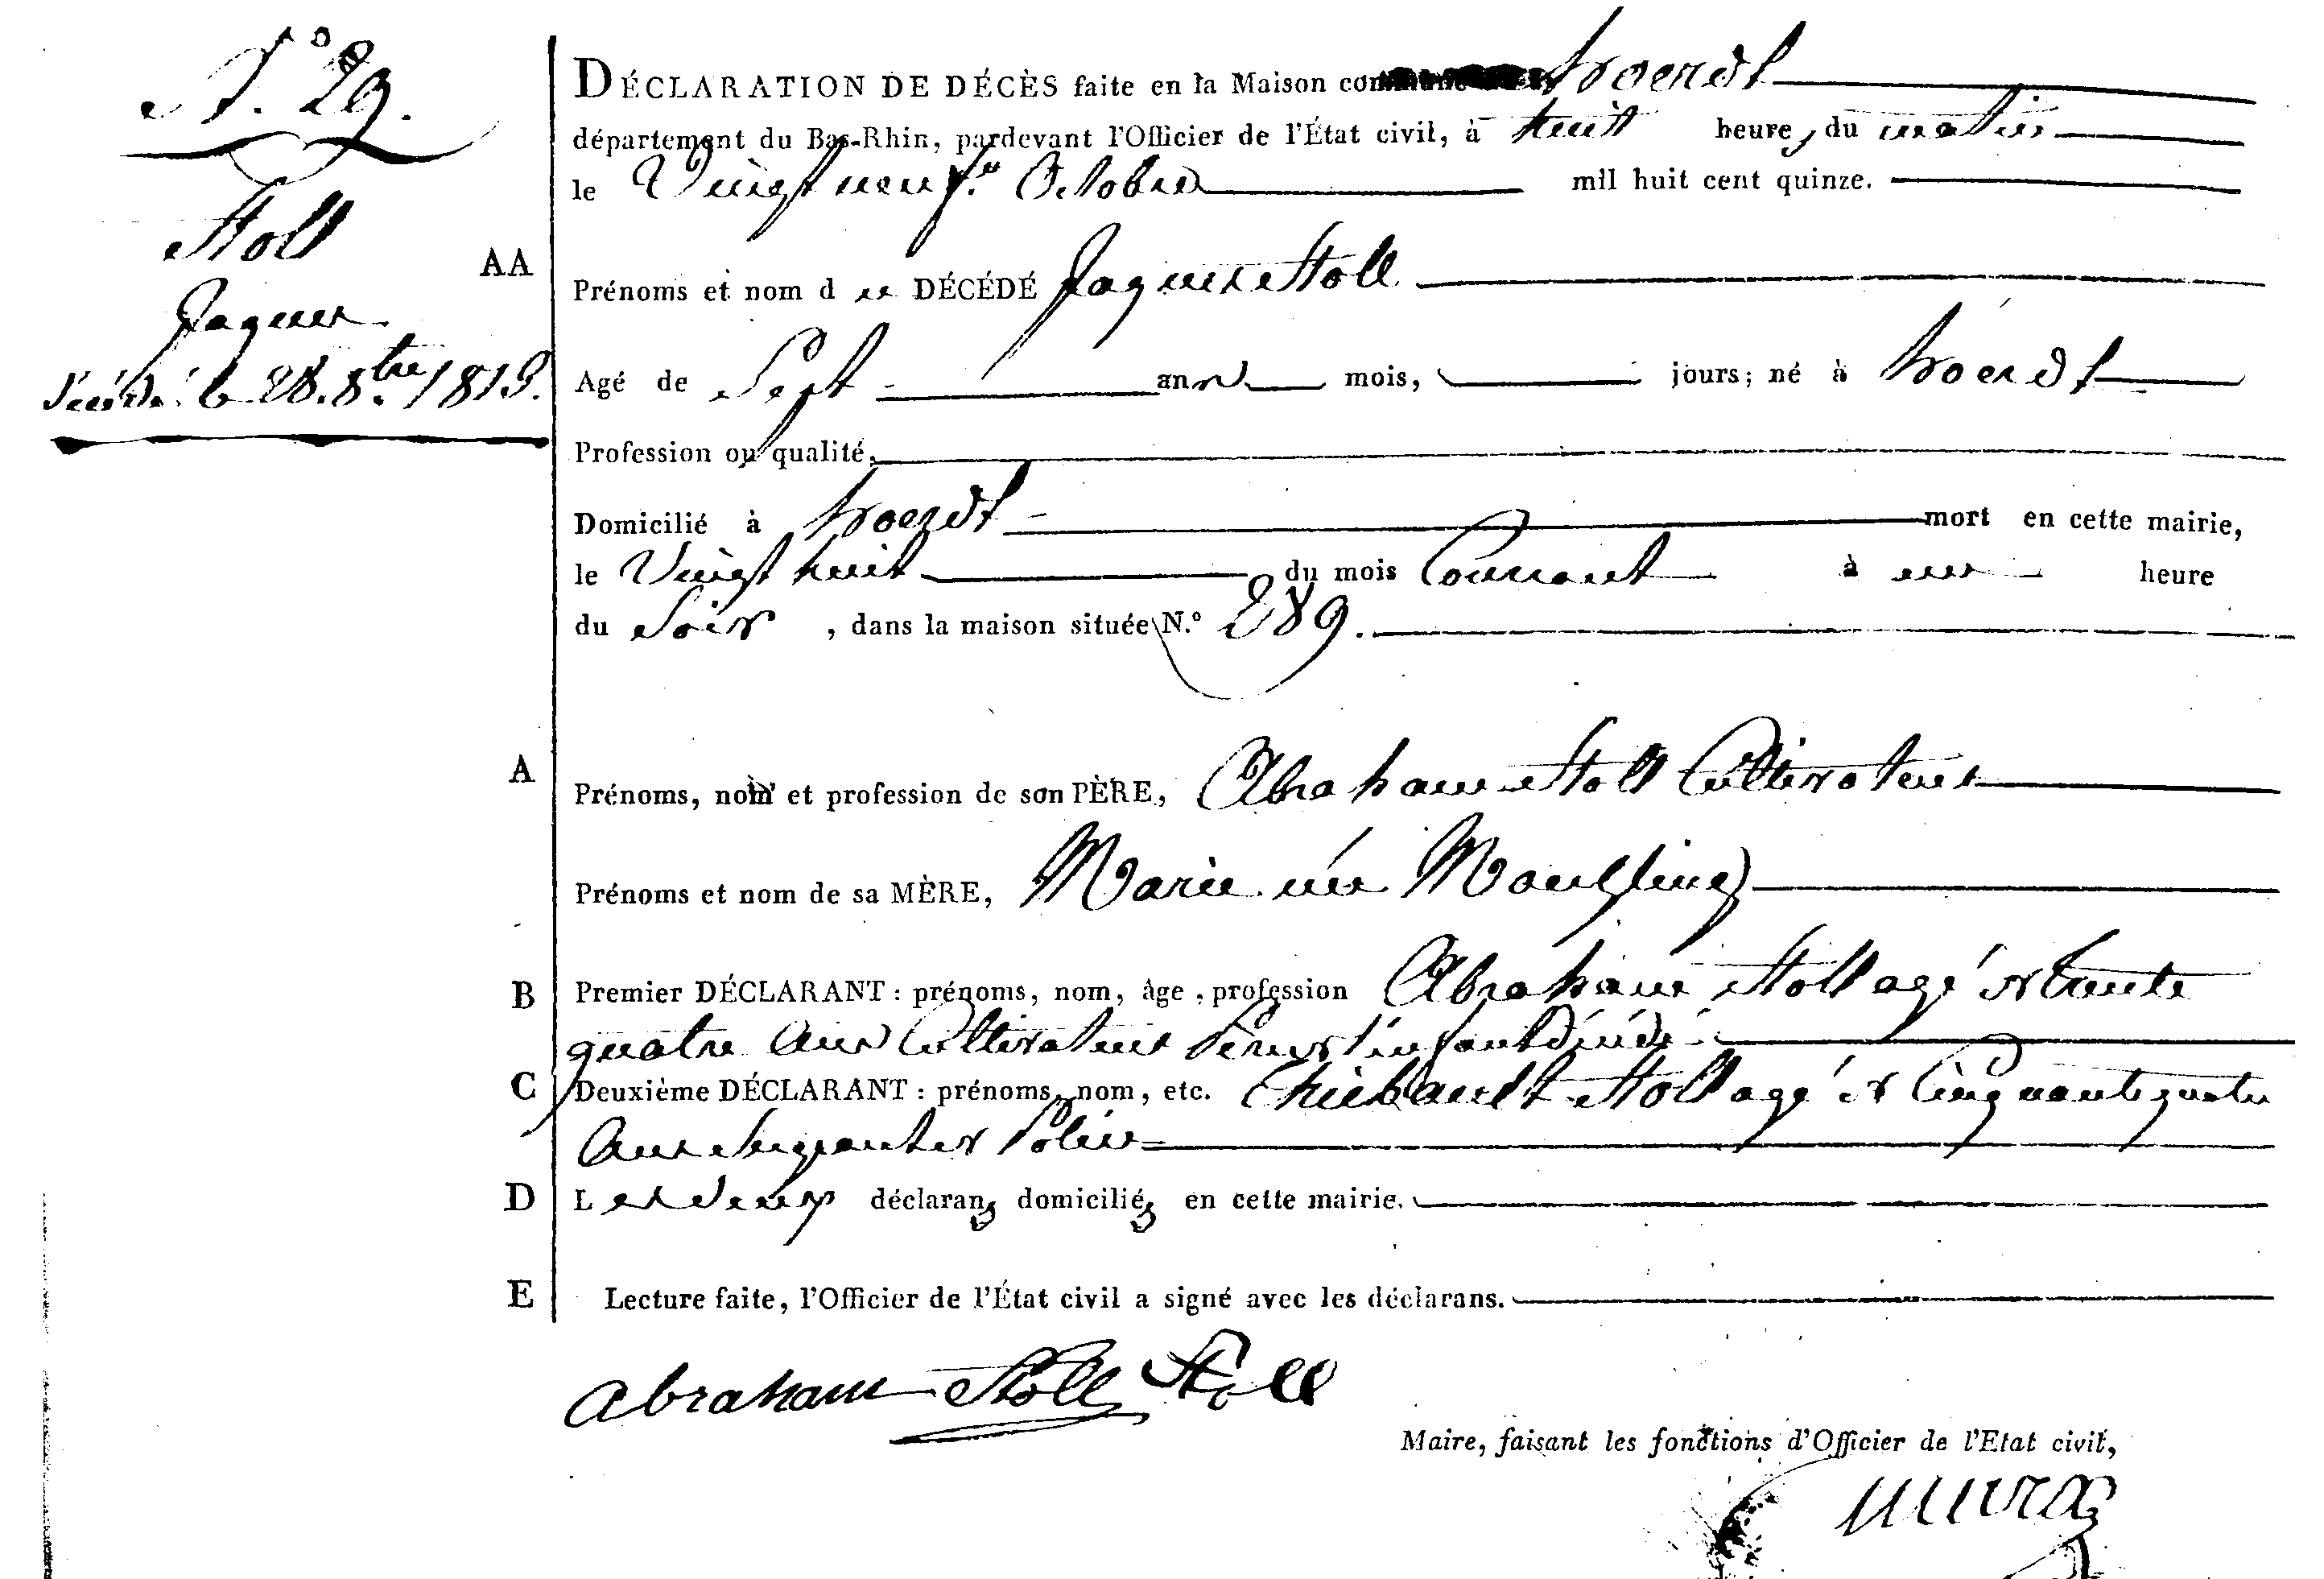 N.° 29.
Stoll
Jaques
décédé le 28. 8.bre 1815.
DÉCLARATION DE DÉCÈS faite en la Maison commune hoerdt
département du Bas-Rhin, pardevant l'Officier de l'État civil, à huit heures du matin
le Vingt neuf.e Octobre mil huit cent quinze.
AA Prénoms et nom d u DÉCÉDÉ Jaques Stoll
Agé de Sept ans mois, jours; né à hoerdt
Profession ou qualité,
Domicilié à hoerdt mort en cette mairie,
le Vingt huit du mois Courant à une heure
du Soir , dans la maison située N.° 289.
A Prénoms, nom et profession de son PÈRE, Abraham Stoll Cultivateur
Prénoms et nom de sa MÈRE, Marie née
B Premier DÉCLARANT : prénoms, nom, âge, profession Abraham Stoll agé de trente
quatre Ans Cultivateur Pere de l'enfant décédé
C Deuxième DÉCLARANT : prénoms, nom, etc. Thiebault Stoll agé de Cinquante quatre
Ans Sergeant de Police
D Les deux déclarans domiciliés en cette mairie.
E Lecture faite, l'Officier de l'État civil a signé avec les déclarans.
Abraham Stoll Stoll
Maire, faisant les fonctions d'Officier de l'Etat civil,